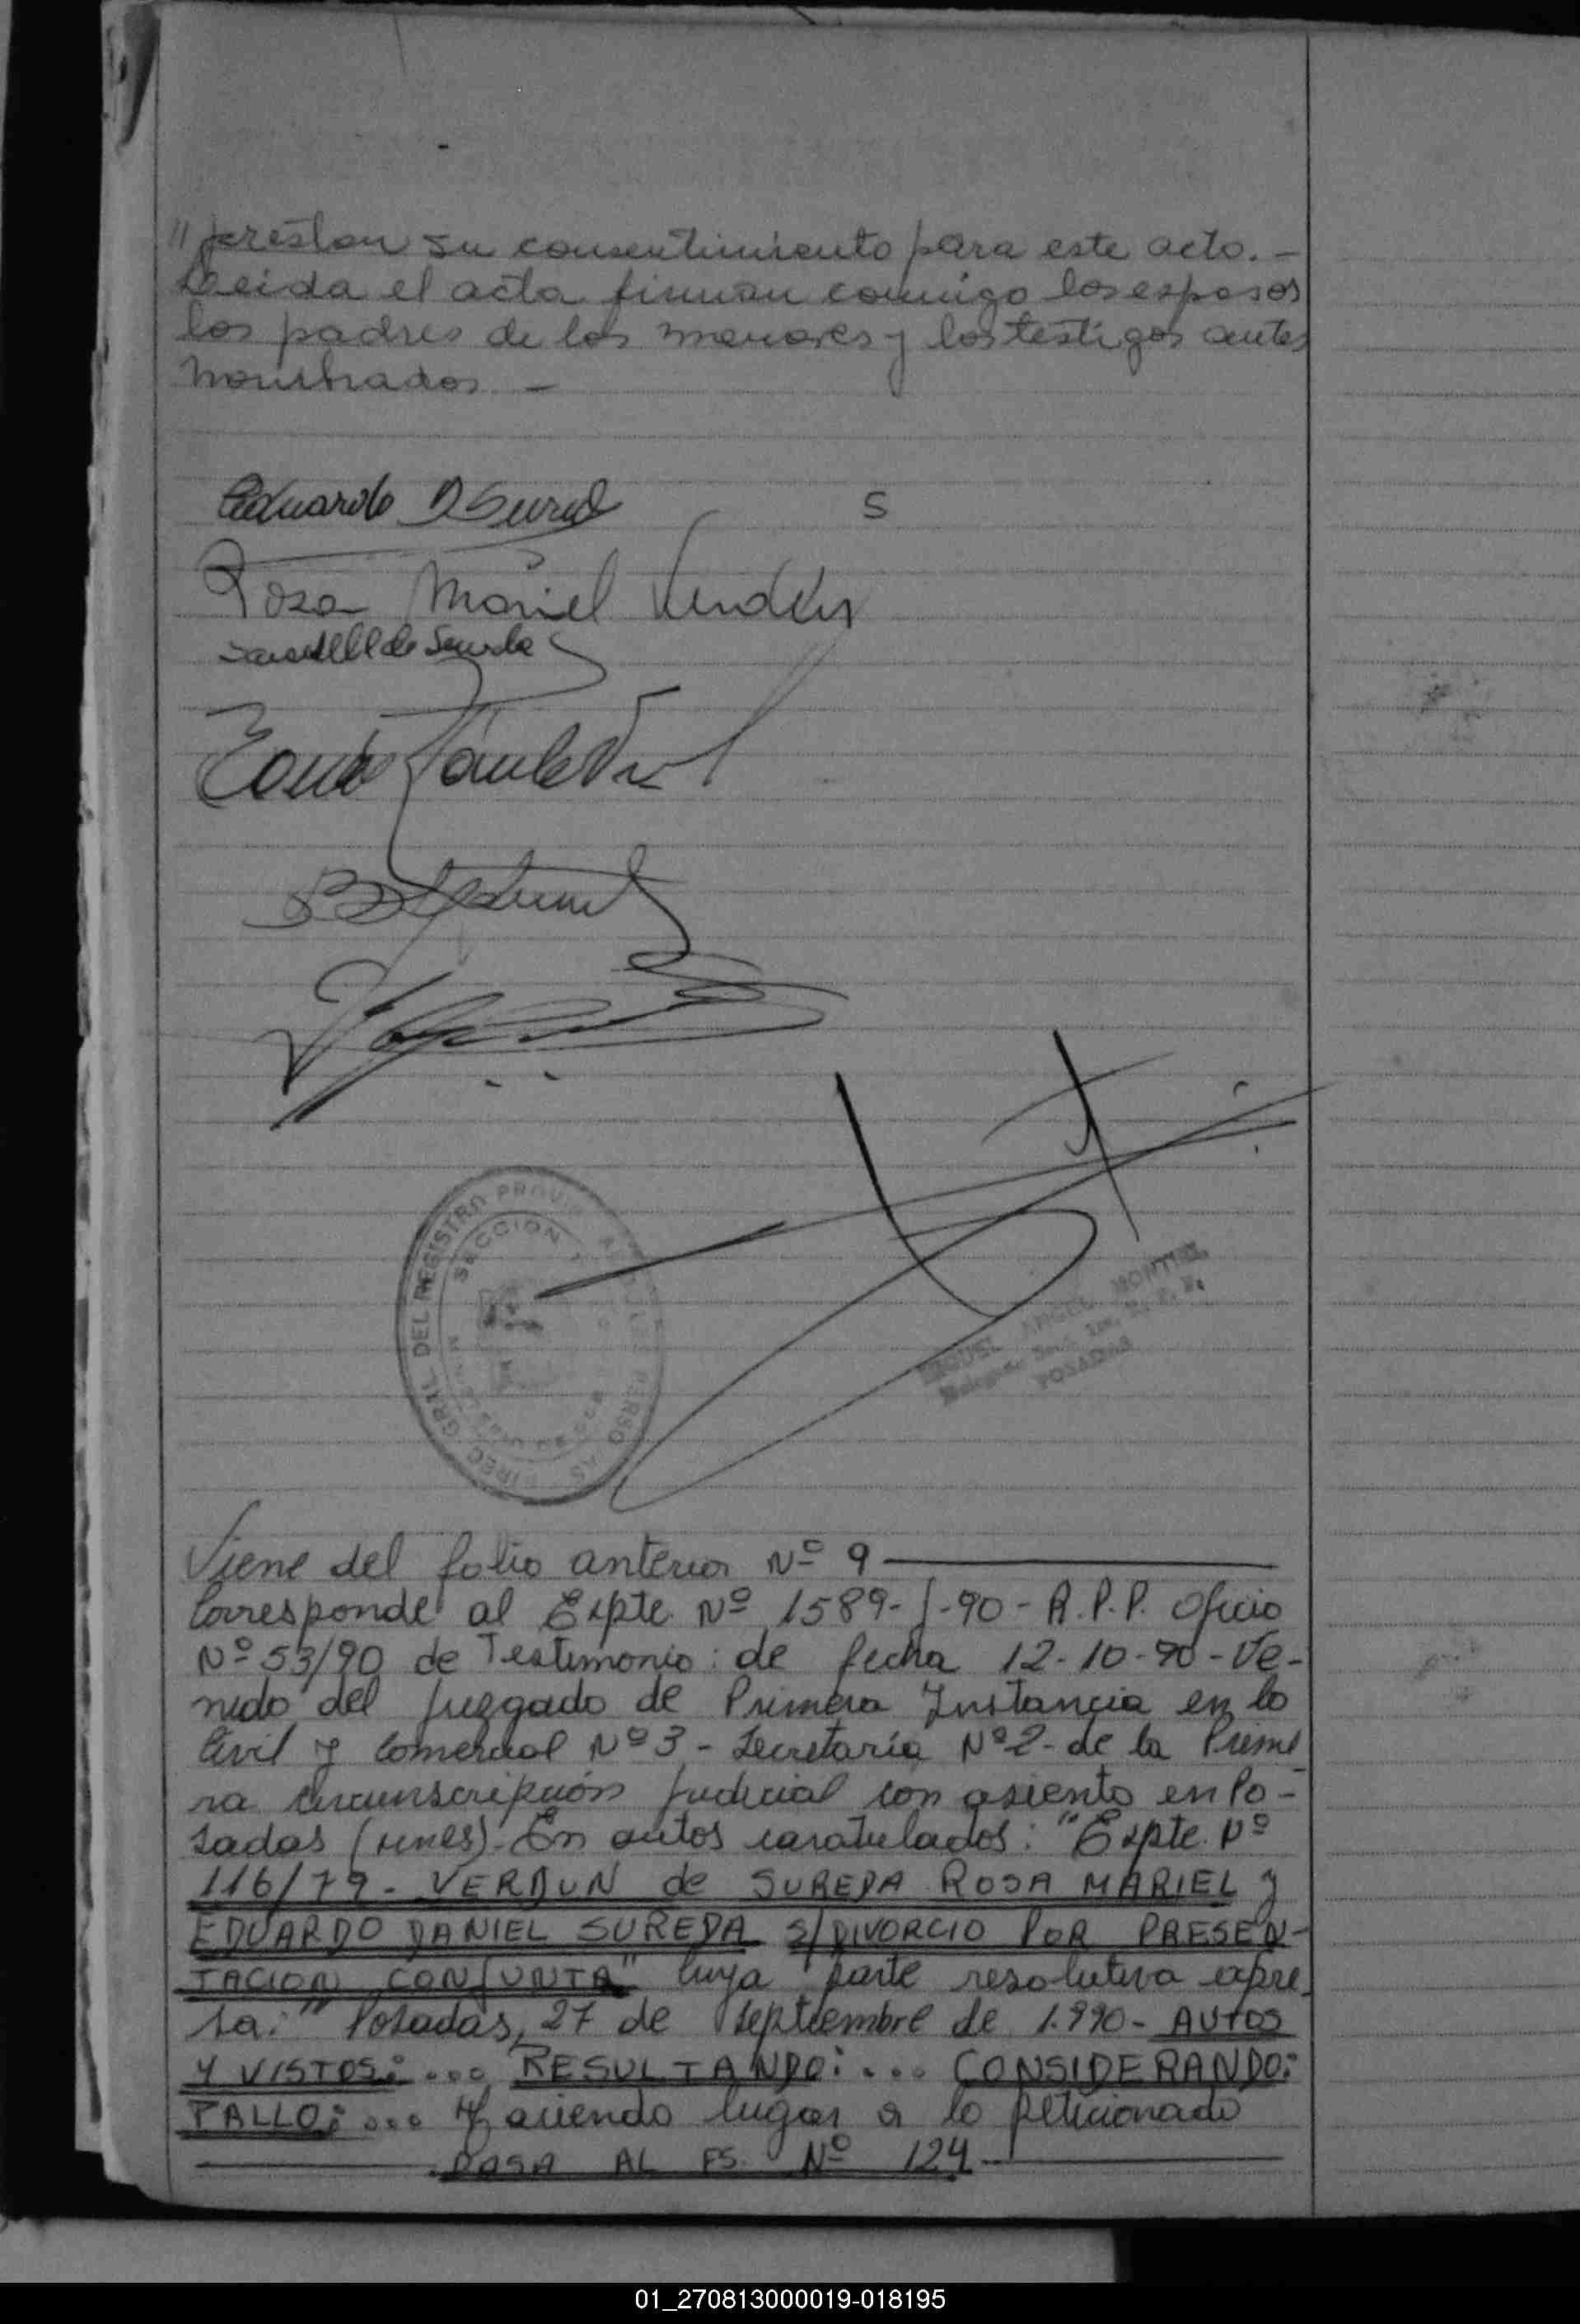 // prestan su consentimiento para este acto. -
Leida el acta firman conmigo los esposos
los padres de los menores y los testigos antes
nombrados -
Eduardo D Sureda
S
Rosa Mariel Verdún
de Sureda
DIREC. GRAL DEL REGISTRO PROVIN
SECCION 1
MIGUEL ANGEL MONTIEL
POSADAS
Viene del folio anterior Nº 9
Corresponde al Expte. Nº 1589-J-90- R.P.P. Oficio
Nº 53/90 de Testimonio: de fecha 12-10-90- Ve-
nido del Juzgado de Primera Instancia en lo
Civil y Comercial Nº 3 - Secretaría Nº 2- de la Prime
ra Circunscripción Judicial con asiento en Po-
sadas (mnes). En autos caratulados: "Expte. Nº
116/79 - VERDUN de SUREDA ROSA MARIEL y
EDUARDO DANIEL SUREDA S/DIVORCIO POR PRESEN-
TACION CONJUNTA" Cuya parte resolutiva expre
sa: " Posadas, 27 de septiembre de 1.990- AUTOS
Y VISTOS: ... RESULTANDO: ... CONSIDERANDO:
FALLO: ... Haciendo lugar a lo peticionado
PASA AL FS. Nº 124
01_270813000019-018195